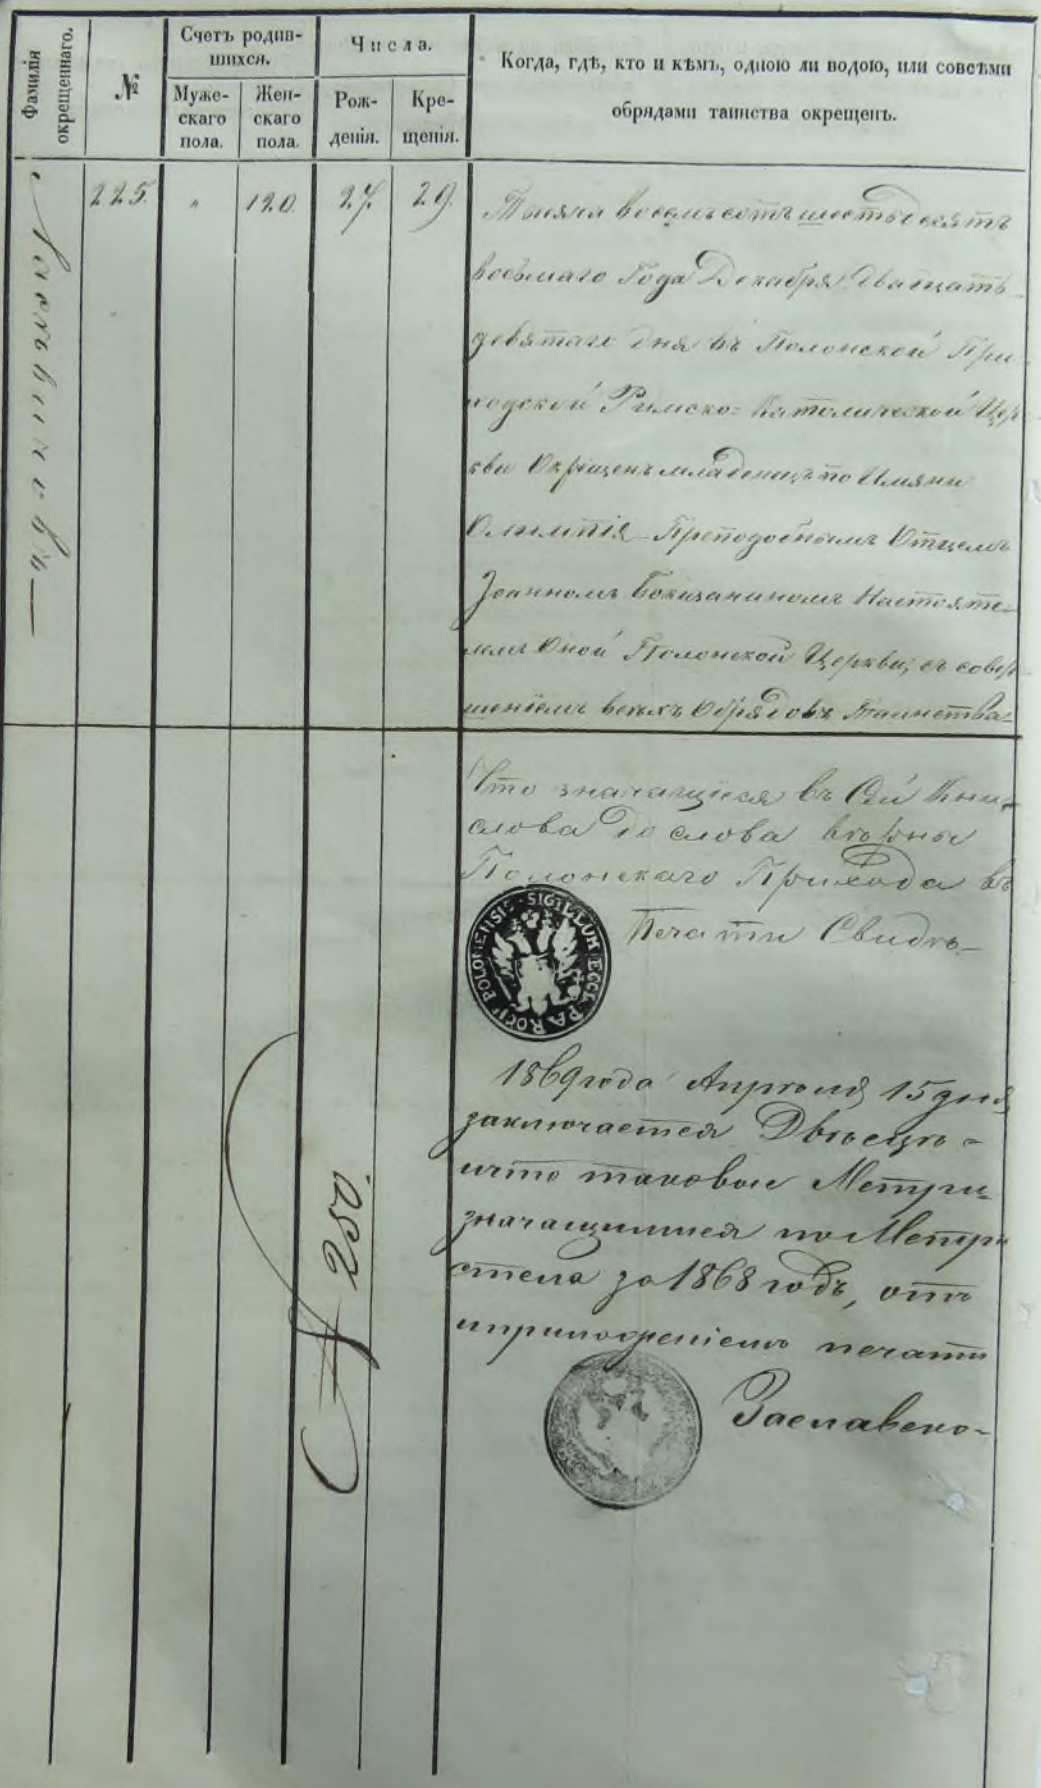 Фамилія
окрещеннаго.
№
Счетъ родив-
шихся.
Муже-
скаго
пола.
Жен-
скаго
пола.
Числа.
Рож-
денія.
Кре-
щенія.
Когда, гдѣ, кто и кѣмъ, одною ли водою, или совсѣми
обрядами таинства окрещенъ.
225.
"
120.
27.
29.
Тысяча восемъсотъ шестьдесятъ
восьмаго Года Декабря двацать
девятаго дня въ Полонской При-
ходской Римско-Католической Цер
кви Окрищенъ младенецъ по Имяни
Олимпія Преподобнымъ Отцемъ
Іоанномъ Настояте-
лемъ Оной Полонской Церкви, съ совер
шеніемъ всѣхъ Обрядовъ Таинства
Что значащіеся въ Сей Кни-
слова до слова вѣрны
Полонскаго Прихода въ
Печати Свидѣ-
SIGILLUM ECCL. PAROCH. POLONENSIS
1869 года Апрѣля 15 дня
заключается Двѣсти
что таковые Метри-
значащимися по Метри
стела за 1868 годъ, отъ
приложеніемъ печати
Заславско-
№ 250.